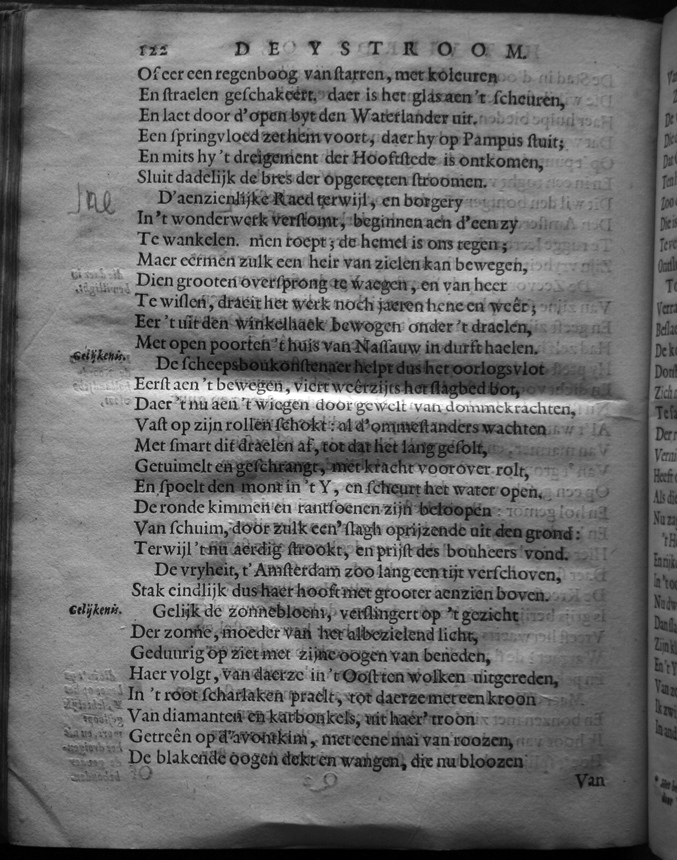 122 DE YSTROOM.
Of eer een regenboog van starren, met koleuren
En straelen geschakeert. daer is het glas aen 't scheuren,
En laet door d'open byt den Waterlander uit.
Een springvloed zet hem voort, daer hy op Pampus stuit;
En mits hy 't dreigement der Hooftstede is ontkomen,
Sluit dadelijk de bres der opgereeten stroomen.
D'aenzienlijke Raed terwijl, en borgery
In 't wonderwerk verstomt, beginnen aen d'een zy
Te wankelen. men roept; de hemel is ons tegen;
Maer eermen zulk een heir van zielen kan bewegen,
Dien grooten oversprong te waegen, en van heer
Te wislen, draeit het werk noch jaeren hene en weêr;
Eer 't uit den winkelhaek bewogen onder 't draelen,
Met open poorten 't huis van Nassauw in durft haelen.
Gelijkenis. De scheepsboukonstenaer helpt dus het oorlogsvlot
Eerst aen 't bewegen, viert weêrzijts het slagbed bot,
Daer 't nu aen 't wiegen door gewelt van dommekrachten,
Vast op zijn rollen schokt: al d'ommestanders wachten
Met smart dit draelen af, tot dat het lang gesolt,
Getuimelt en geschrangt, met kracht voorover rolt,
En spoelt den mont in 't Y, en scheurt het water open.
De ronde kimmen en rantsoenen zijn beloopen
Van schuim, door zulk een' slagh oprijzende uit den grond:
Terwijl 't nu aerdig strookt, en prijst des bouheers vond.
De vryheit, t' Amsterdam zoo lang een tijt verschoven,
Stak eindlijk dus haer hooft met grooter aenzien boven.
Gelijkenis. Gelijk de zonnebloem, verslingert op 't gezicht
Der zonne, moeder van het albezielend licht,
Geduurig op ziet met zijne oogen van beneden,
Haer volgt, van daerze in 't Oosten wolken uitgereden,
In 't root scharlaken praelt, tot daerze met een kroon
Van diamanten en karbonkels, uit haer' troon
Getreên op d'avontkim, met eene mai van roozen,
De blakende oogen dekt en wangen, die nu bloozen
Van